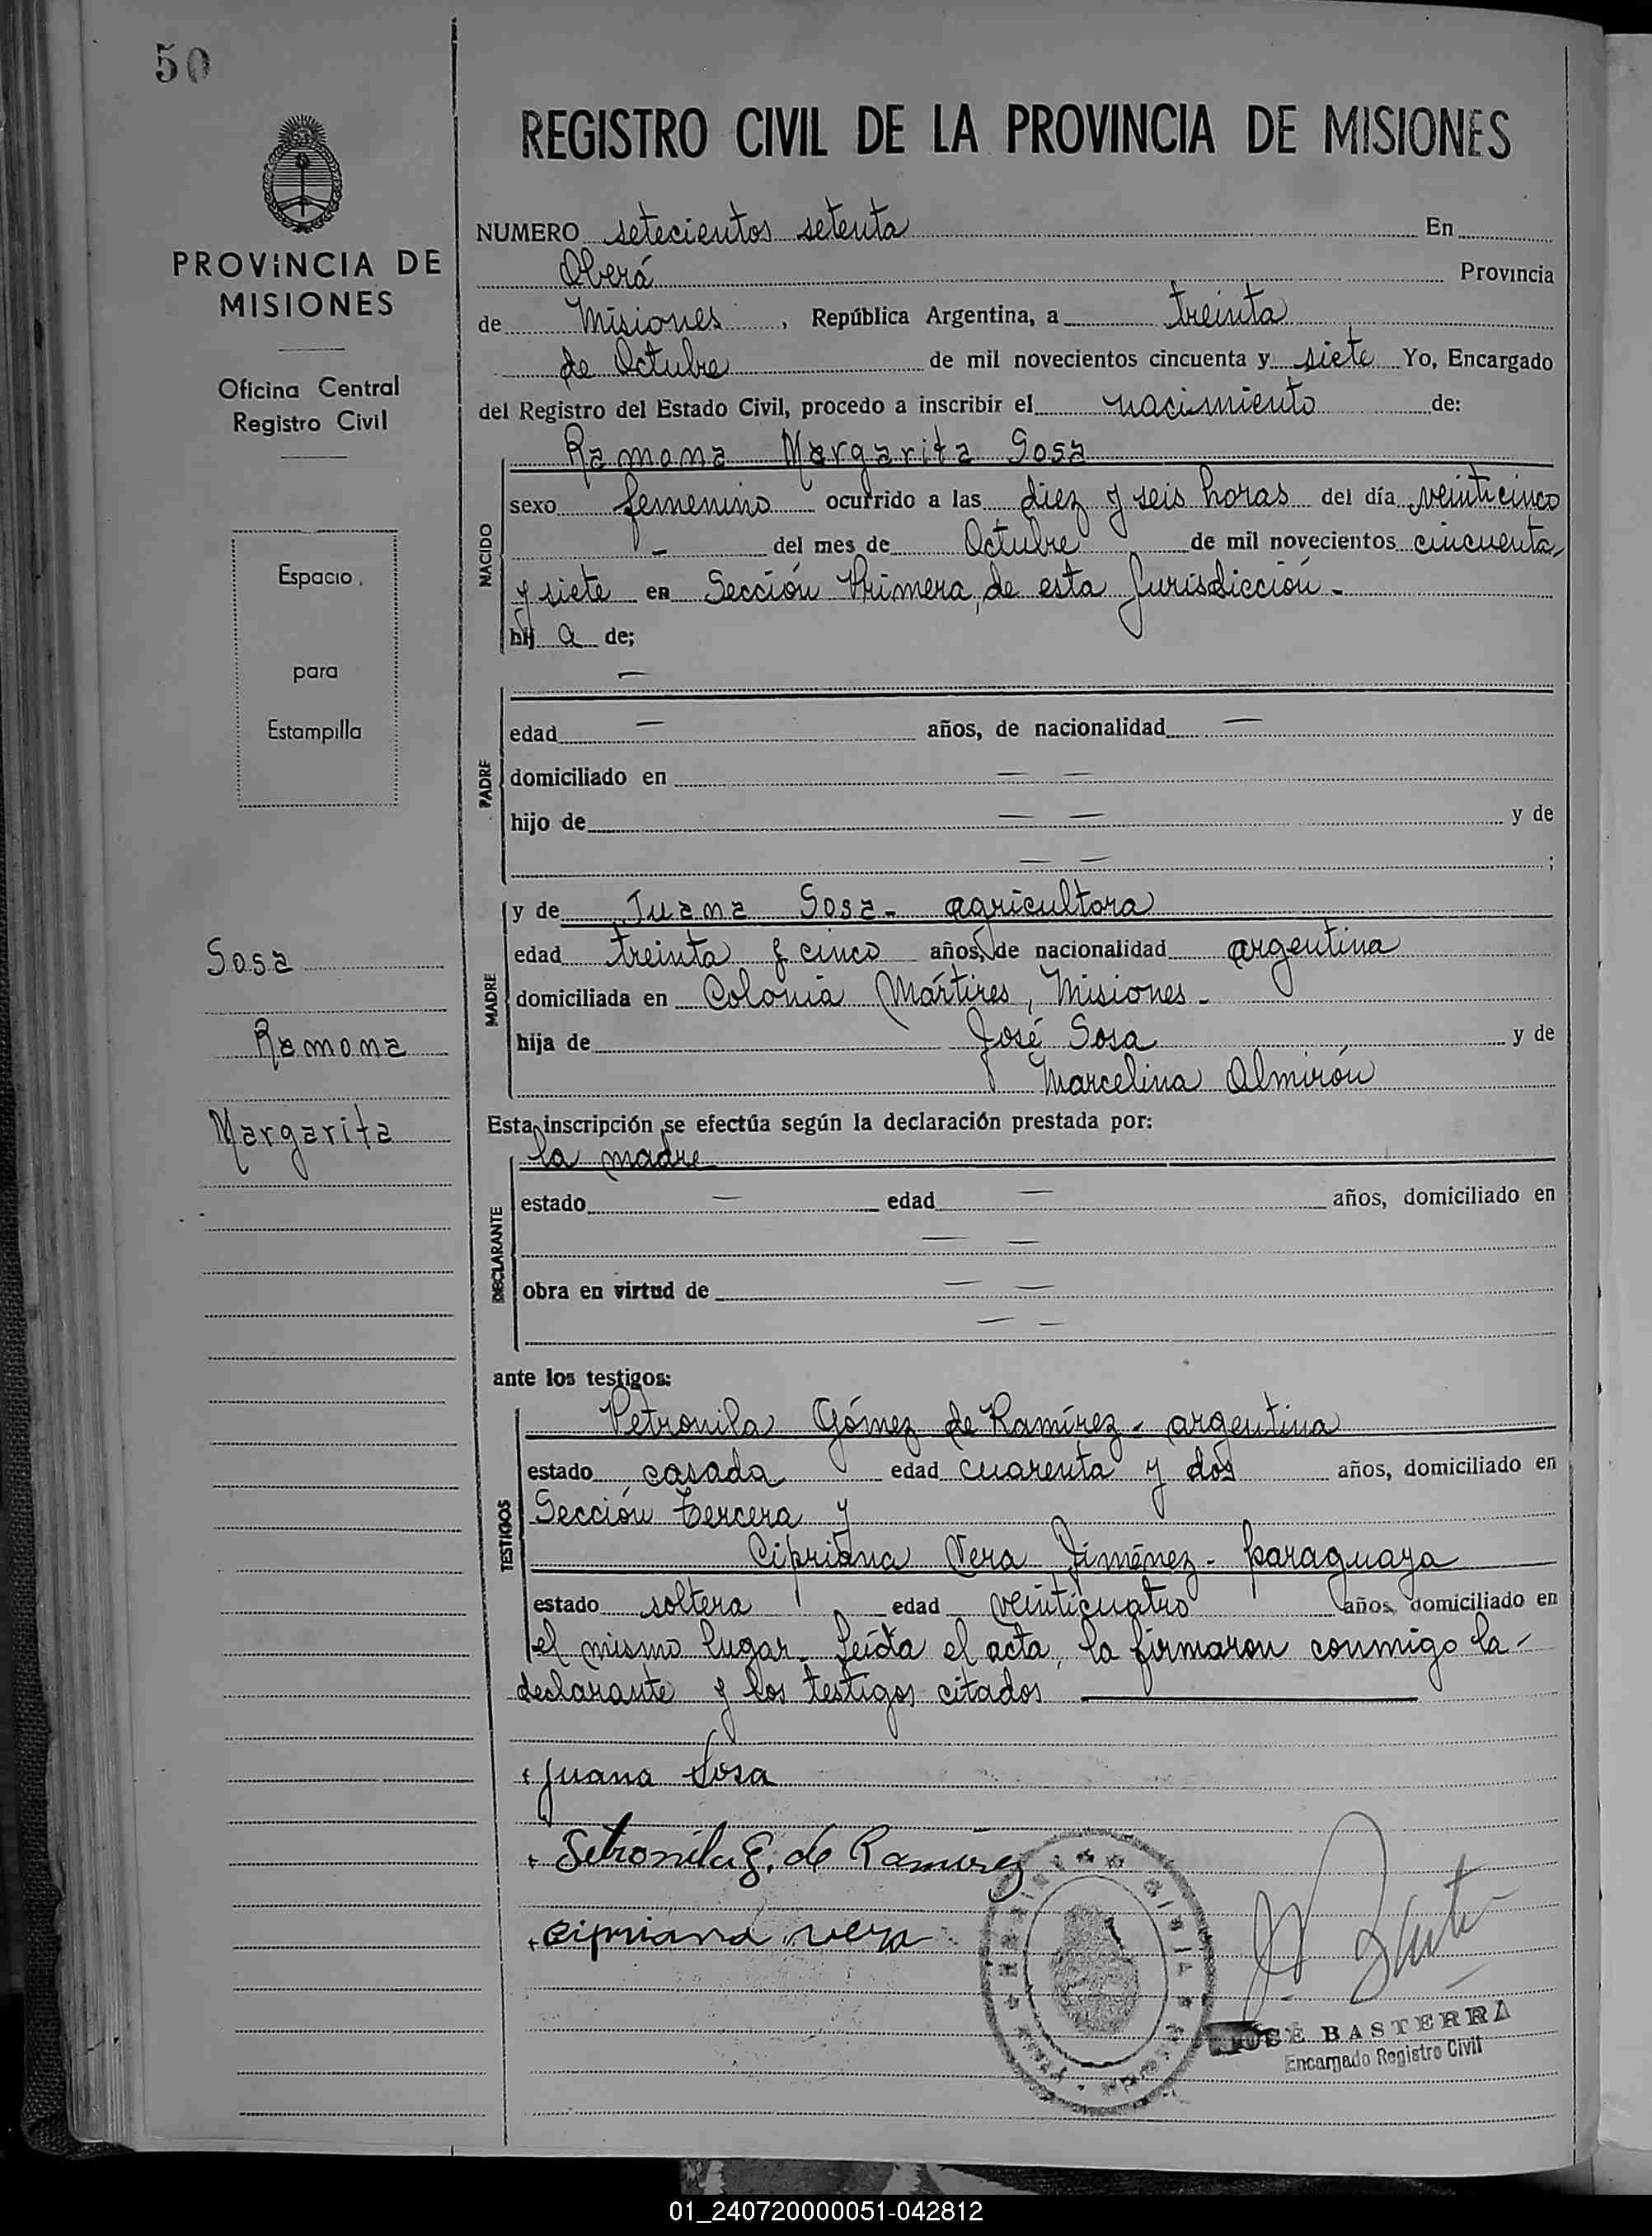 50
PROVINCIA DE
MISIONES
Oficina Central
Registro Civil
Espacio
para
Estampilla
Sosa
Ramona
Margarita
REGISTRO CIVIL DE LA PROVINCIA DE MISIONES
NUMERO setecientos setenta En
Oberá Provincia
de Misiones, República Argentina, a treinta
de Octubre de mil novecientos cincuenta y siete Yo, Encargado
del Registro del Estado Civil, procedo a inscribir el nacimiento de:
Ramona Margarita Sosa
NACIDO
sexo femenino ocurrido a las diez y seis horas del día veinticinco
— del mes de Octubre de mil novecientos cincuenta
y siete en Sección Primera, de esta Jurisdicción -
hij a de;
—
PADRE
edad — años, de nacionalidad —
domiciliado en — —
hijo de — — y de
— — ;
y de Juana Sosa - agricultora
MADRE
edad treinta y cinco años, de nacionalidad argentina
domiciliada en Colonia Mártires, Misiones -
hija de José Sosa y de
Marcelina Almirón
Esta inscripción se efectúa según la declaración prestada por:
la madre
DECLARANTE
estado — edad — años, domiciliado en
— —
obra en virtud de — —
— —
ante los testigos:
Petronila Gómez de Ramírez - argentina
TESTIGOS
estado casada edad cuarenta y dos años, domiciliado en
Sección Tercera y
Cipriana Vera Jiménez - paraguaya
estado soltera edad veinticuatro años, domiciliado en
el mismo lugar. Leída el acta, la firmaron conmigo la -
declarante y los testigos citados
Juana Sosa
Petronila G. de Ramirez
cipriana vera
JOSÉ BASTERRA
Encargado Registro Civil
01_240720000051-042812